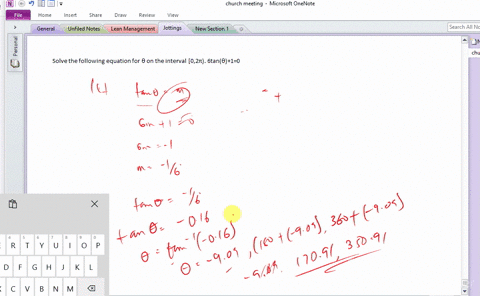 church meeting - Microsoft OneNote
File Home Insert Share Draw Review View
General UnFiled Notes Lean Management Jottings New Section 1
Search All No
Personal
chur
Solve the following equation for θ on the interval [0,2π). 6tan(θ)+1=0
tanθ = m
+
6m + 1 = 0
6m = -1
m = -1/6
tanθ = -1/6
tanθ = -0.16
θ = tan⁻¹(-0.16)
θ = -9.09, (180 + (-9.09), 360 + (-9.09)
-9.09. 170.91, 350.91
E R T Y U I O P
D F G H J K L
C V B N M